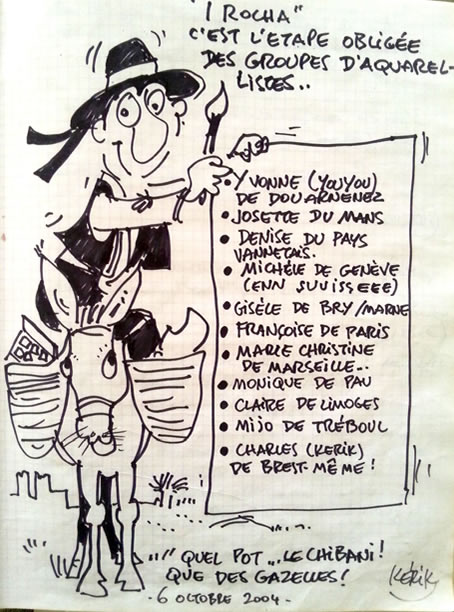 "I ROCHA"
C'EST L'ETAPE OBLIGÉE
DES GROUPES D'AQUAREL-
LISTES..
• YVONNE (YOUYOU)
DE DOUARNENEZ
• JOSETTE DU MANS
• DENISE DU PAYS
VANNETAIS.
• MICHÈLE DE GENÈVE
(ENN SUUISSEEE)
• GISÈLE DE BRY/MARNE
• FRANÇOISE DE PARIS
• MARIE CHRISTINE
DE MARSEILLE...
• MONIQUE DE PAU
• CLAIRE DE LIMOGES
• MIJO DE TRÉBOUL
• CHARLES (KERIK)
DE BREST MÊME!
QUEL POT... LE CHIBANI!
QUE DES GAZELLES!
- 6 OCTOBRE 2004 -
KÉRIK